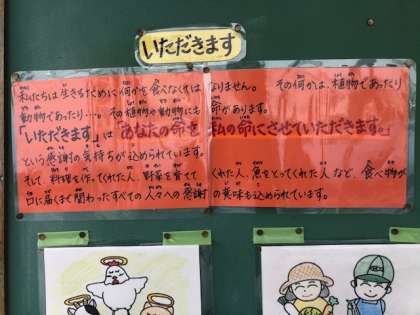 いただきます
私たちは生きるために何かを食べなくてはなりません。 その何かは、植物であったり
動物であったり…。その植物や動物にも命があります。
「いただきます」は「あなたの命を私の命にさせていただきます。」
という感謝の気持ちが込められています。
そして料理を作ってくれた人、野菜を育ててくれた人、魚をとってくれた人など、食べ物が
口に届くまで関わったすべての人々への感謝の意味も込められています。